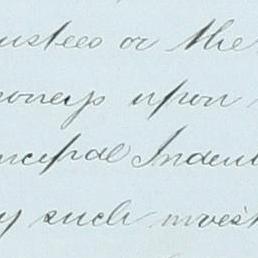 ustees or the
oneys upon
ncipal Indent
y such invest